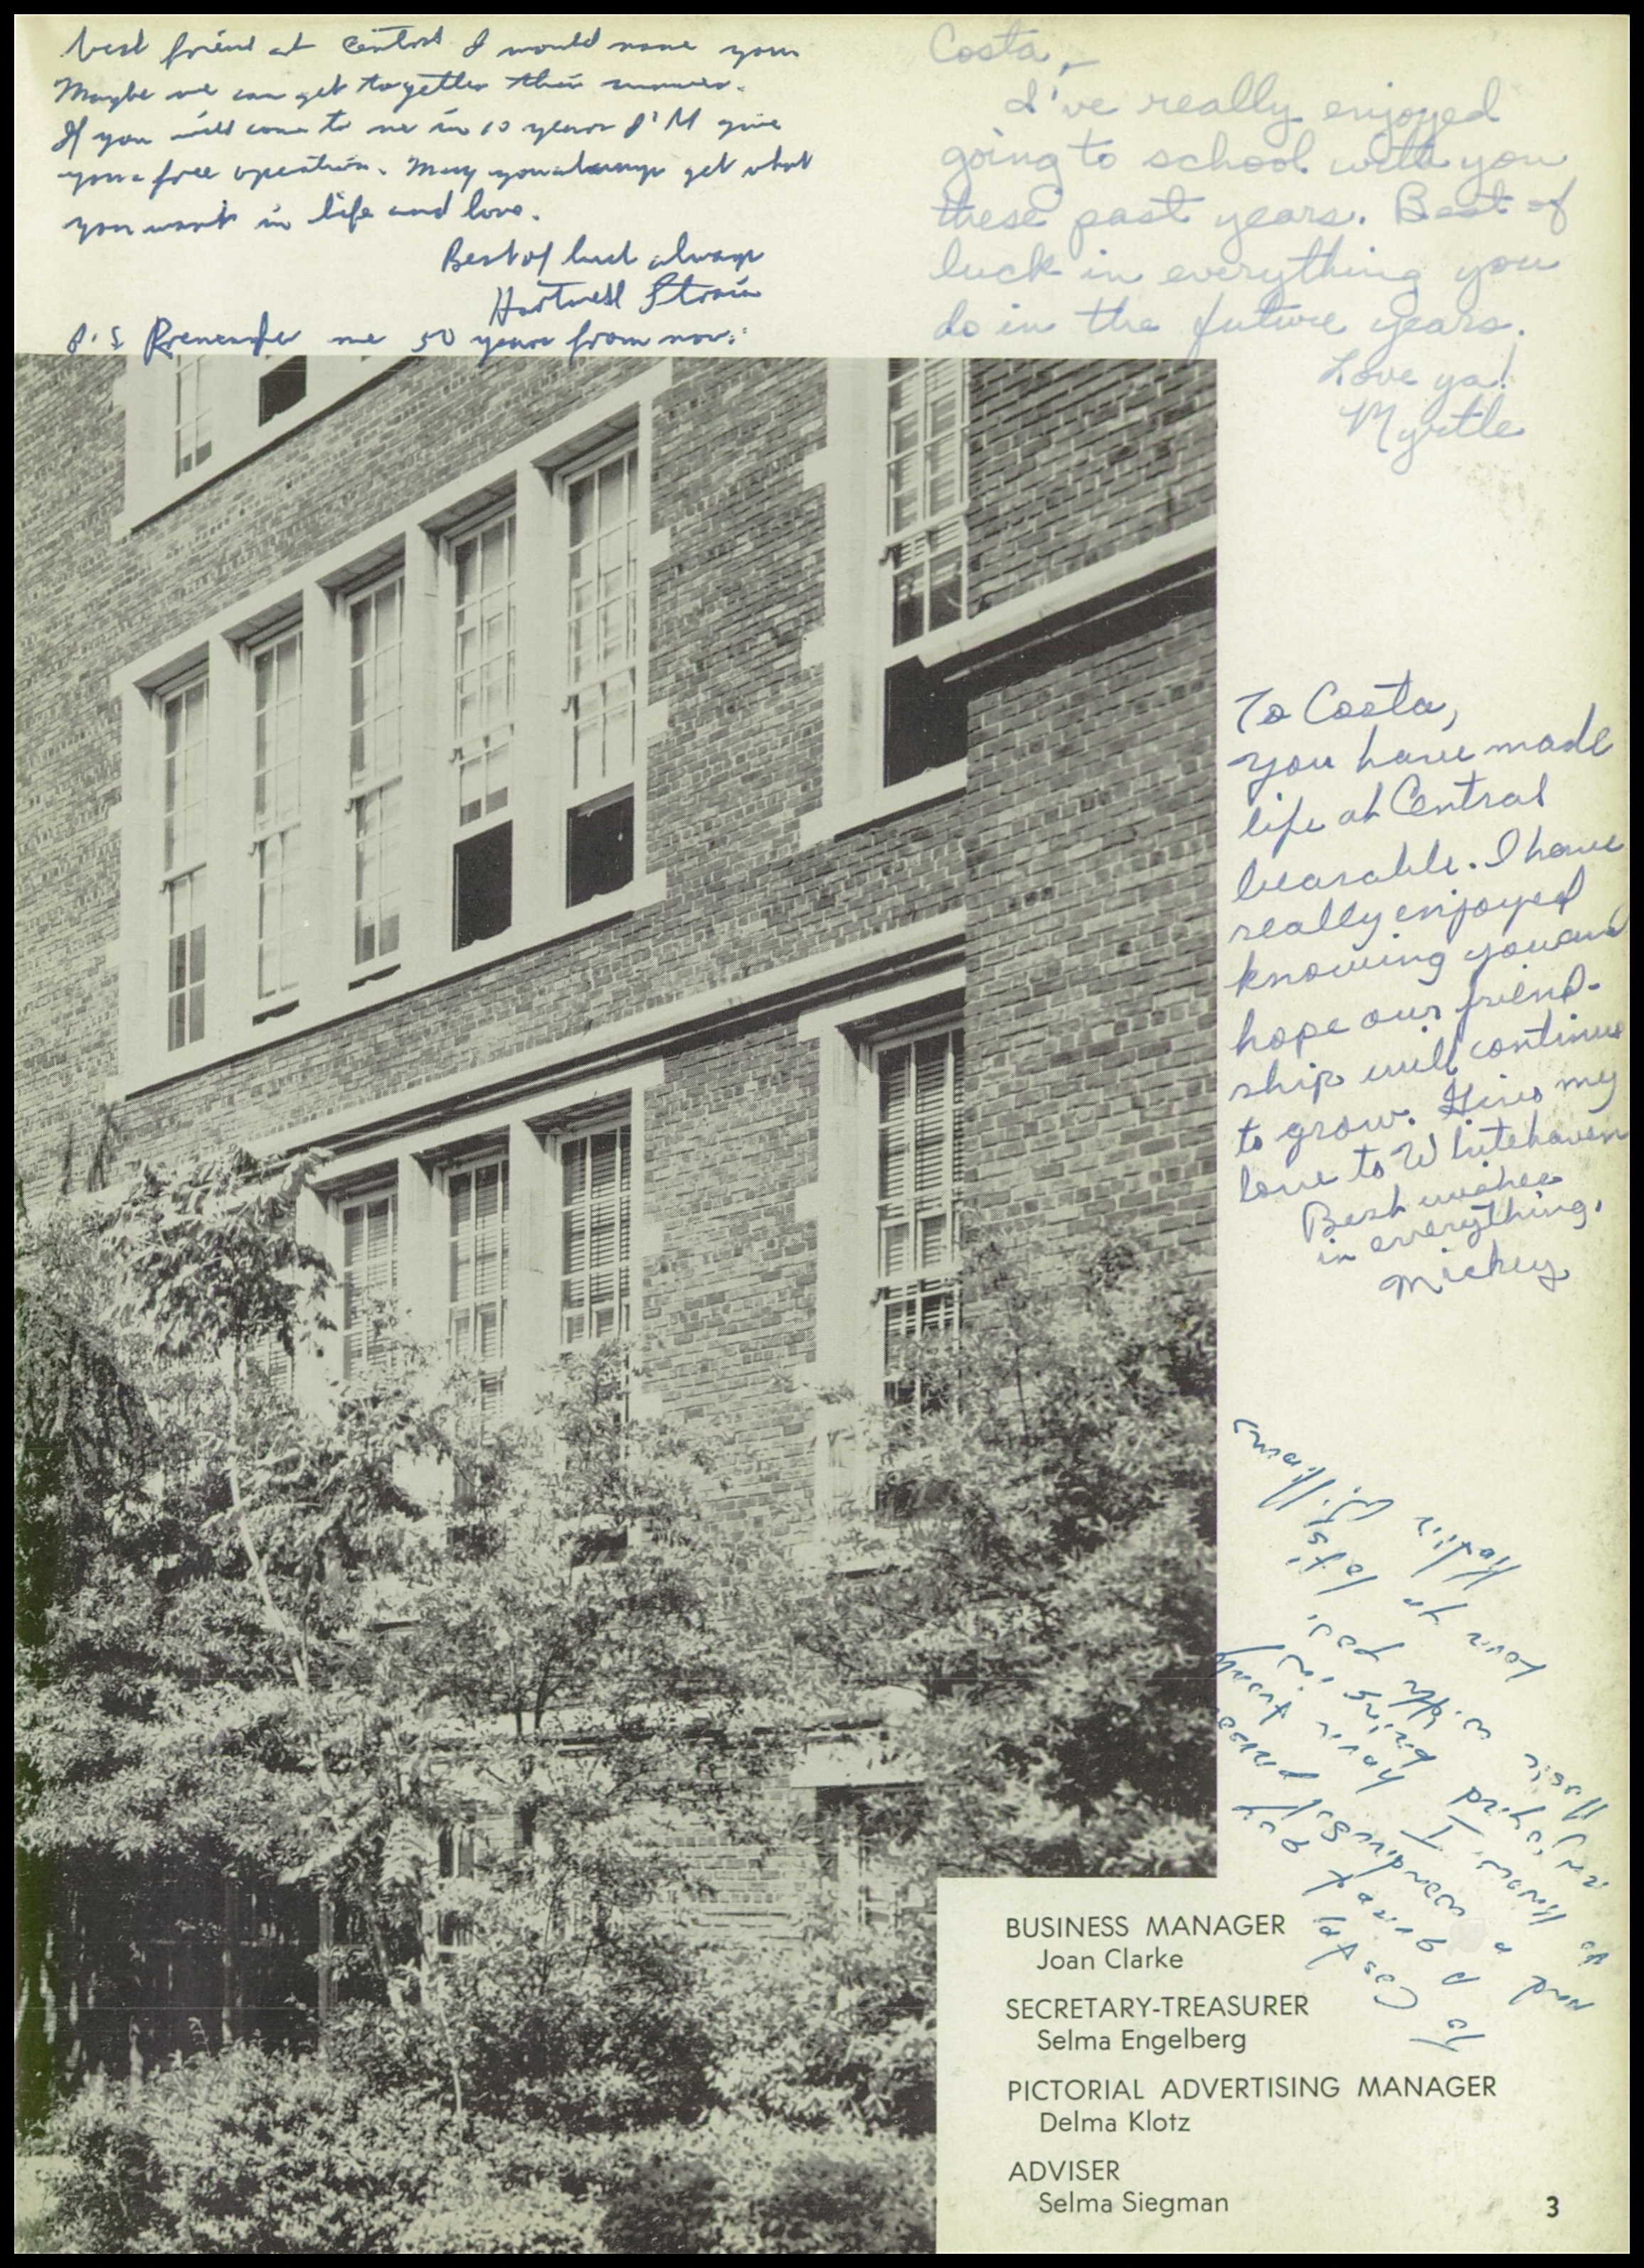 best friend at Central I would name you
Maybe we can get together this summer.
If you will come to me in 10 years I'M give
you a free operation. May you always get what
you want in life and love.
Best of luck always
Hartwell Strain
P.S Remember me 50 years from now.
Costa,
I've really enjoyed
going to school with you
these past years. Best of
luck in everything you
do in the future years.
Love ya!
Myrtle
To Costa,
you have made
life at Central
bearable. I have
really enjoyed
knowing you and
hope our friend-
ship will continue
to grow. Give my
love to Whitehaven
Best wishes
in everything.
Mickey
To Costa,
a great guy
and a
to know. I
your
with
your
Williams
BUSINESS MANAGER
Joan Clarke
SECRETARY-TREASURER
Selma Engelberg
PICTORIAL ADVERTISING MANAGER
Delma Klotz
ADVISER
Selma Siegman
3